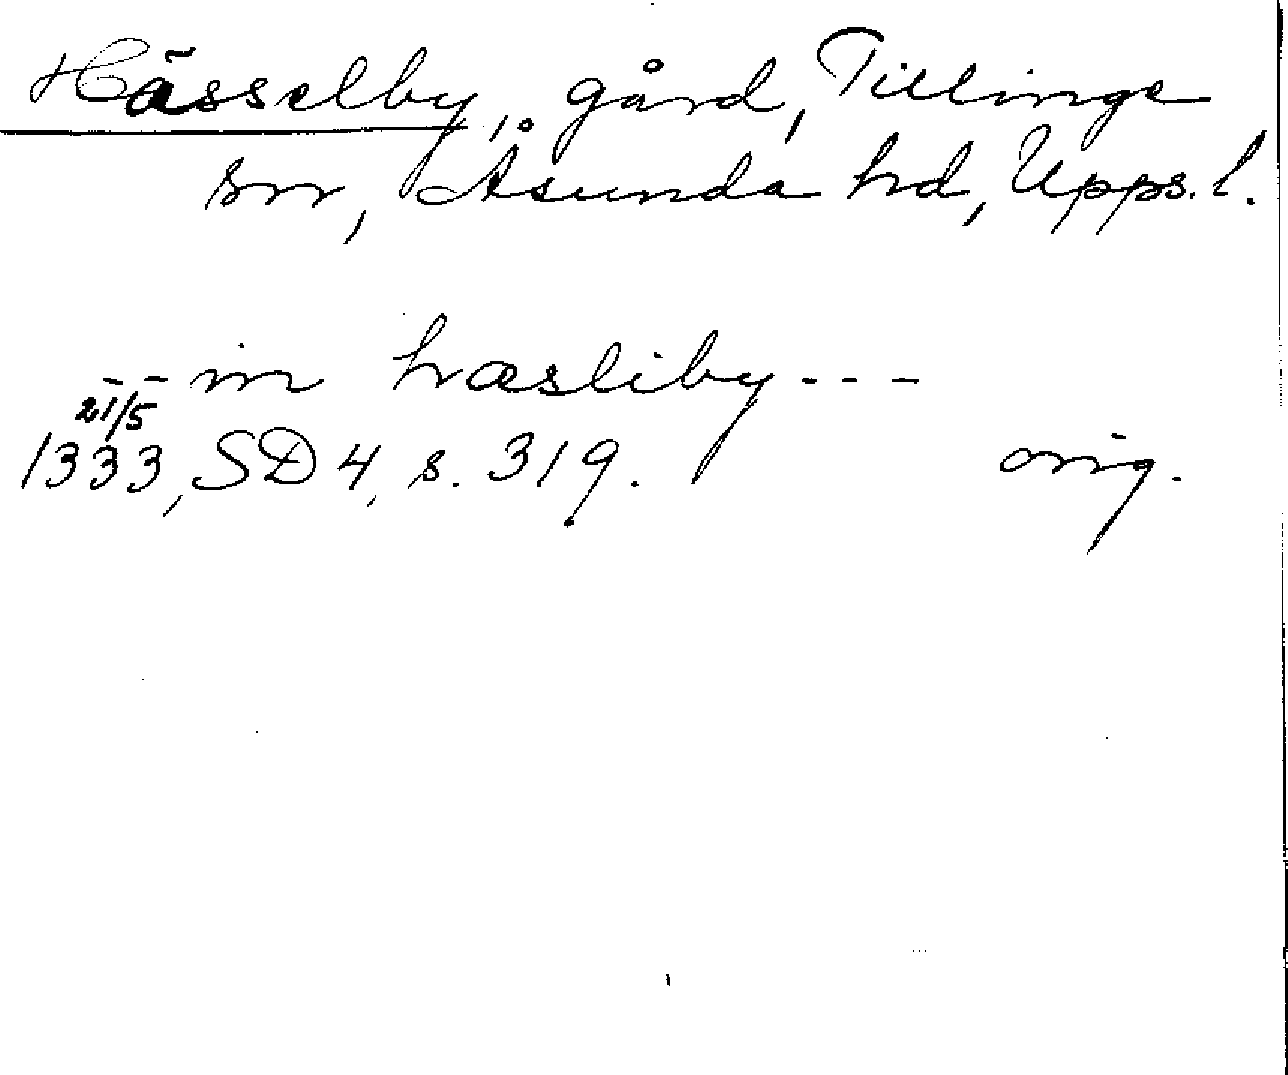 Hässelby, gård, Tillinge
sn, Åsunda hd, Upps. l.
- - in hæsliby - - -
21/5
1333, SD 4, s. 319. orig.